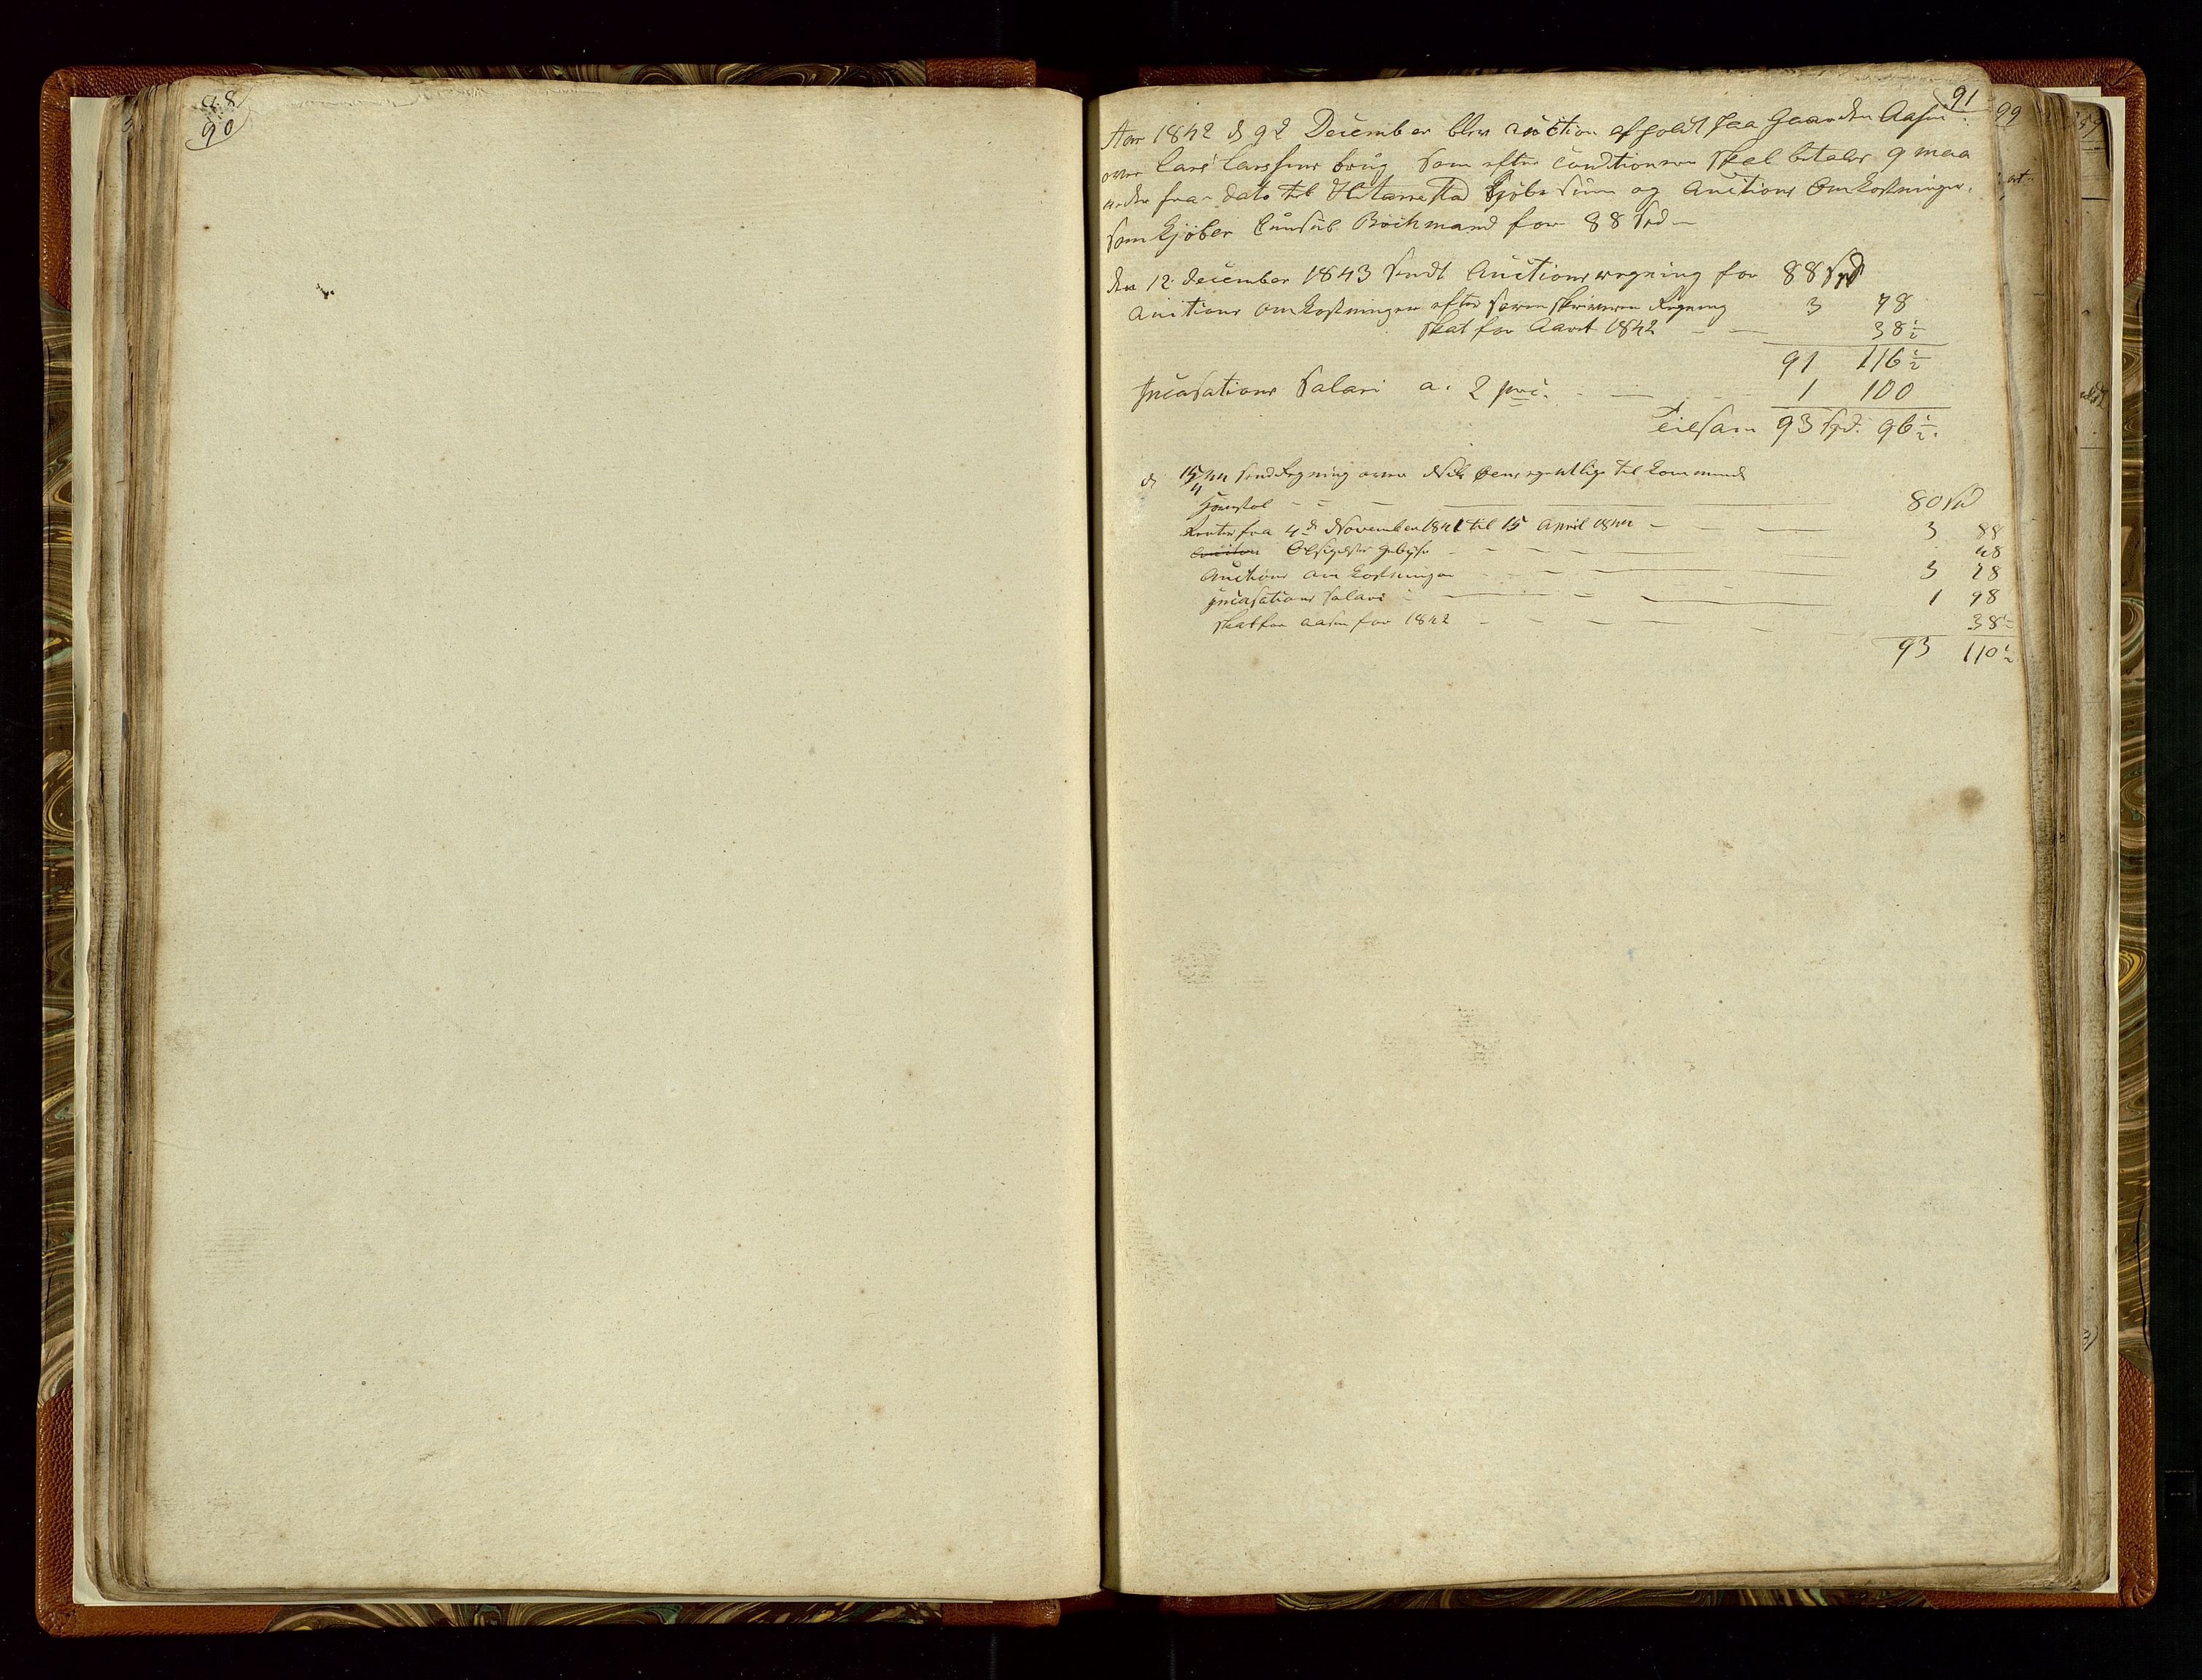 98
90
91
99
Aar 1842 d 9d December blev auction afholdt paa Gaarden Aasen
over Lars Larssens brug som efter Conditionerne skal betales 9 maa
neder fra dato til Kjøbesum og Auctions Omkostninger.
som Kjøber Bøckmand for 88 Spd
den 12 december 1843 sendt Auctionsregning for 88 Spd
Auctions omkostninger efter sorenskriverens Regning 3 78
Skat for Aaret 1842 - - 38 1/2
91 116 1/2
Incasations Salari a. 2 proc. - - - 1 100
Tilsam 93 Spd. 96 1/2.
d 15/4 44 send Regning over
80 Spd
Renter fra 4de November 1841 til 15 April 1844 - - - 3 88
Gebyhr - - - - 48
Auctions omkostninger - - - 3 78
Incasations Salari - - - 1 98
Skat for Aasen for 1842 - - - - 38 1/2
93 110 1/2